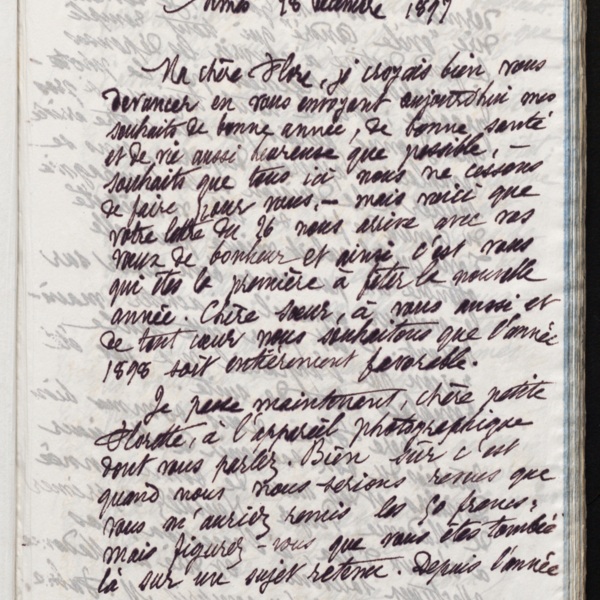 28 décembre 1897
Ma chère Flore, je croyais bien vous
devancer en vous envoyant aujourd'hui mes
souhaits de bonne année, de bonne santé
et de vie aussi heureuse que possible, –
souhaits que tous ici nous ne cessons
de faire pour vous, – mais voici que
votre lettre du 26 nous arrive avec vos
vœux de bonheur et ainsi c'est vous
qui êtes la première à fêter la nouvelle
année. Chère sœur, à vous aussi et
de tout cœur nous souhaitons que l'année
1898 soit entièrement favorable.
Je passe maintenant, chère petite
Florette, à l'appareil photographique
dont vous parlez. Bien sûr c'est
quand nous nous serions revus que
vous m'auriez remis les 50 francs;
mais figurez-vous que vous êtes tombée
là sur un sujet retenu. Depuis l'année